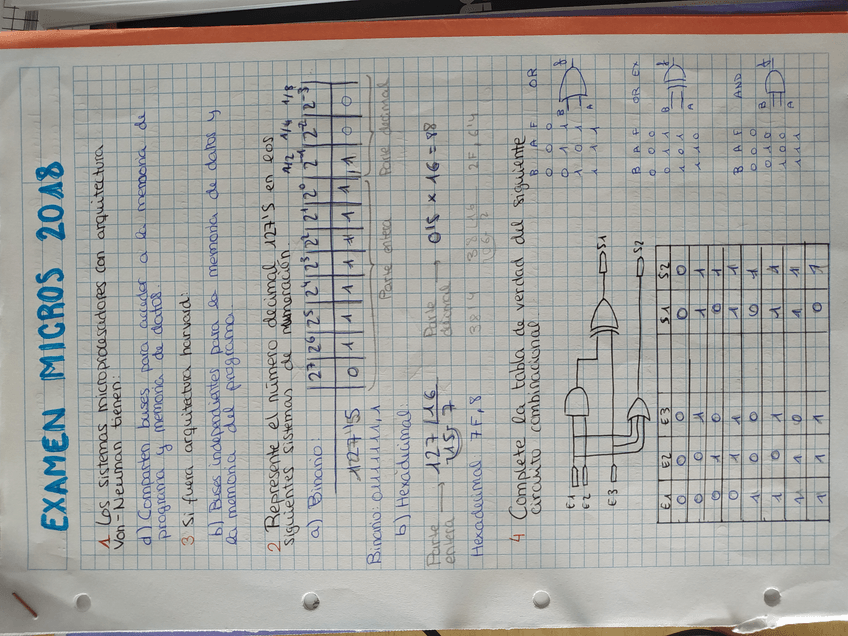 EXAMEN MICROS 2018
1. Los sistemas microprocesadores con arquitectura
Von-Neuman tienen:
d) Comparten buses para acceder a la memoria de
programa y memoria de datos.
3. Si fuera arquitectura harvard:
b) Buses independientes para la memoria de datos y
la memoria del programa.
2. Represente el número decimal 127'5 en los
siguientes sistemas de numeración.
a) Binario:
1/2 1/4 1/8
2^7 2^6 2^5 2^4 2^3 2^2 2^1 2^0 2^-1 2^-2 2^-3
127'5 0 1 1 1 1 1 1 1, 1 0 0
Parte entera Parte decimal
Binario: 01111111,1
b) Hexadecimal:
Parte entera → 127 16
15 7
Parte decimal → 0'5 x 16 = 8
Hexadecimal 7F,8
384
2F,6'4
4 Complete la tabla de verdad del siguiente
circuito combinacional.
E1
E2
E3
S1
S2
E1 E2 E3 S1 S2
0 0 0 0 0
0 0 1 1 1
0 1 0 0 1
0 1 1 1 1
1 0 0 0 1
1 0 1 1 1
1 1 0 1 1
1 1 1 0 1
B A F OR
0 0 0
0 1 1
1 0 1
1 1 1
B
A
B A F OR EX
0 0 0
0 1 1
1 0 1
1 1 0
B
A
B A F AND
0 0 0
0 1 0
1 0 0
1 1 1
B
A